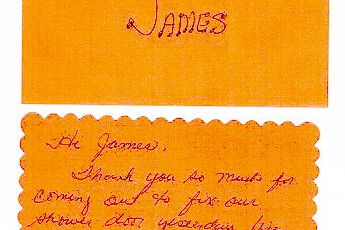 James
Hi James,
Thank you so much for
coming out to fix our
shower door yesterday. We